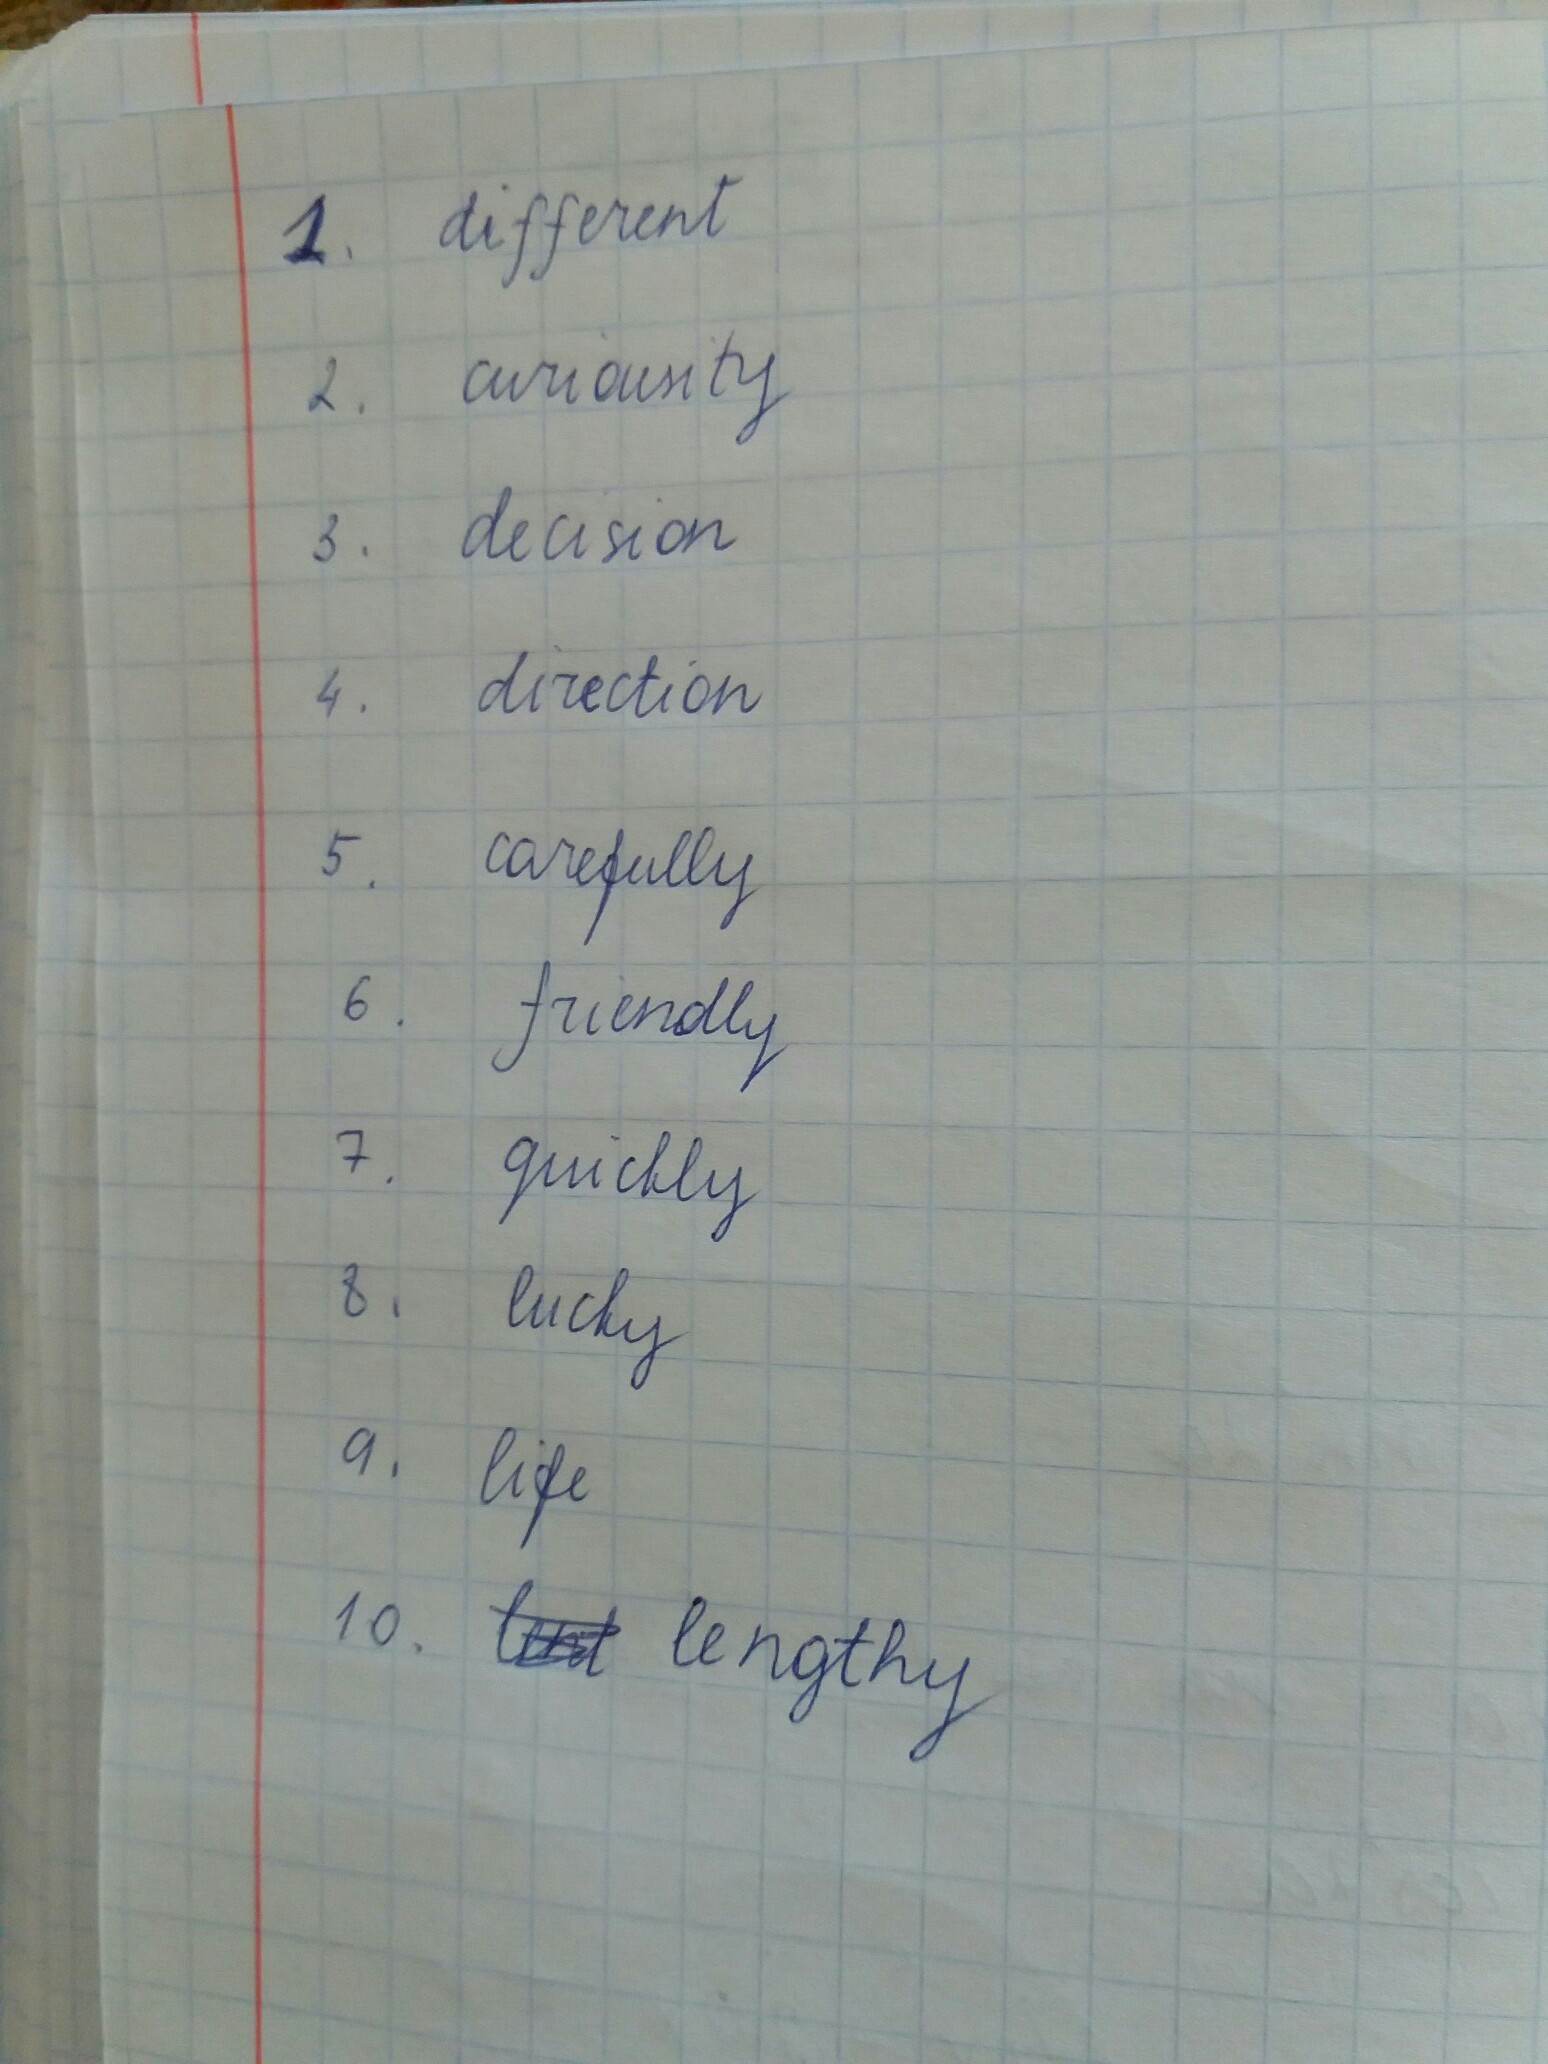 1. different
2. curiousity
3. decision
4. direction
5. carefully
6. friendly
7. quickly
8. lucky
9. life
10. lengthy